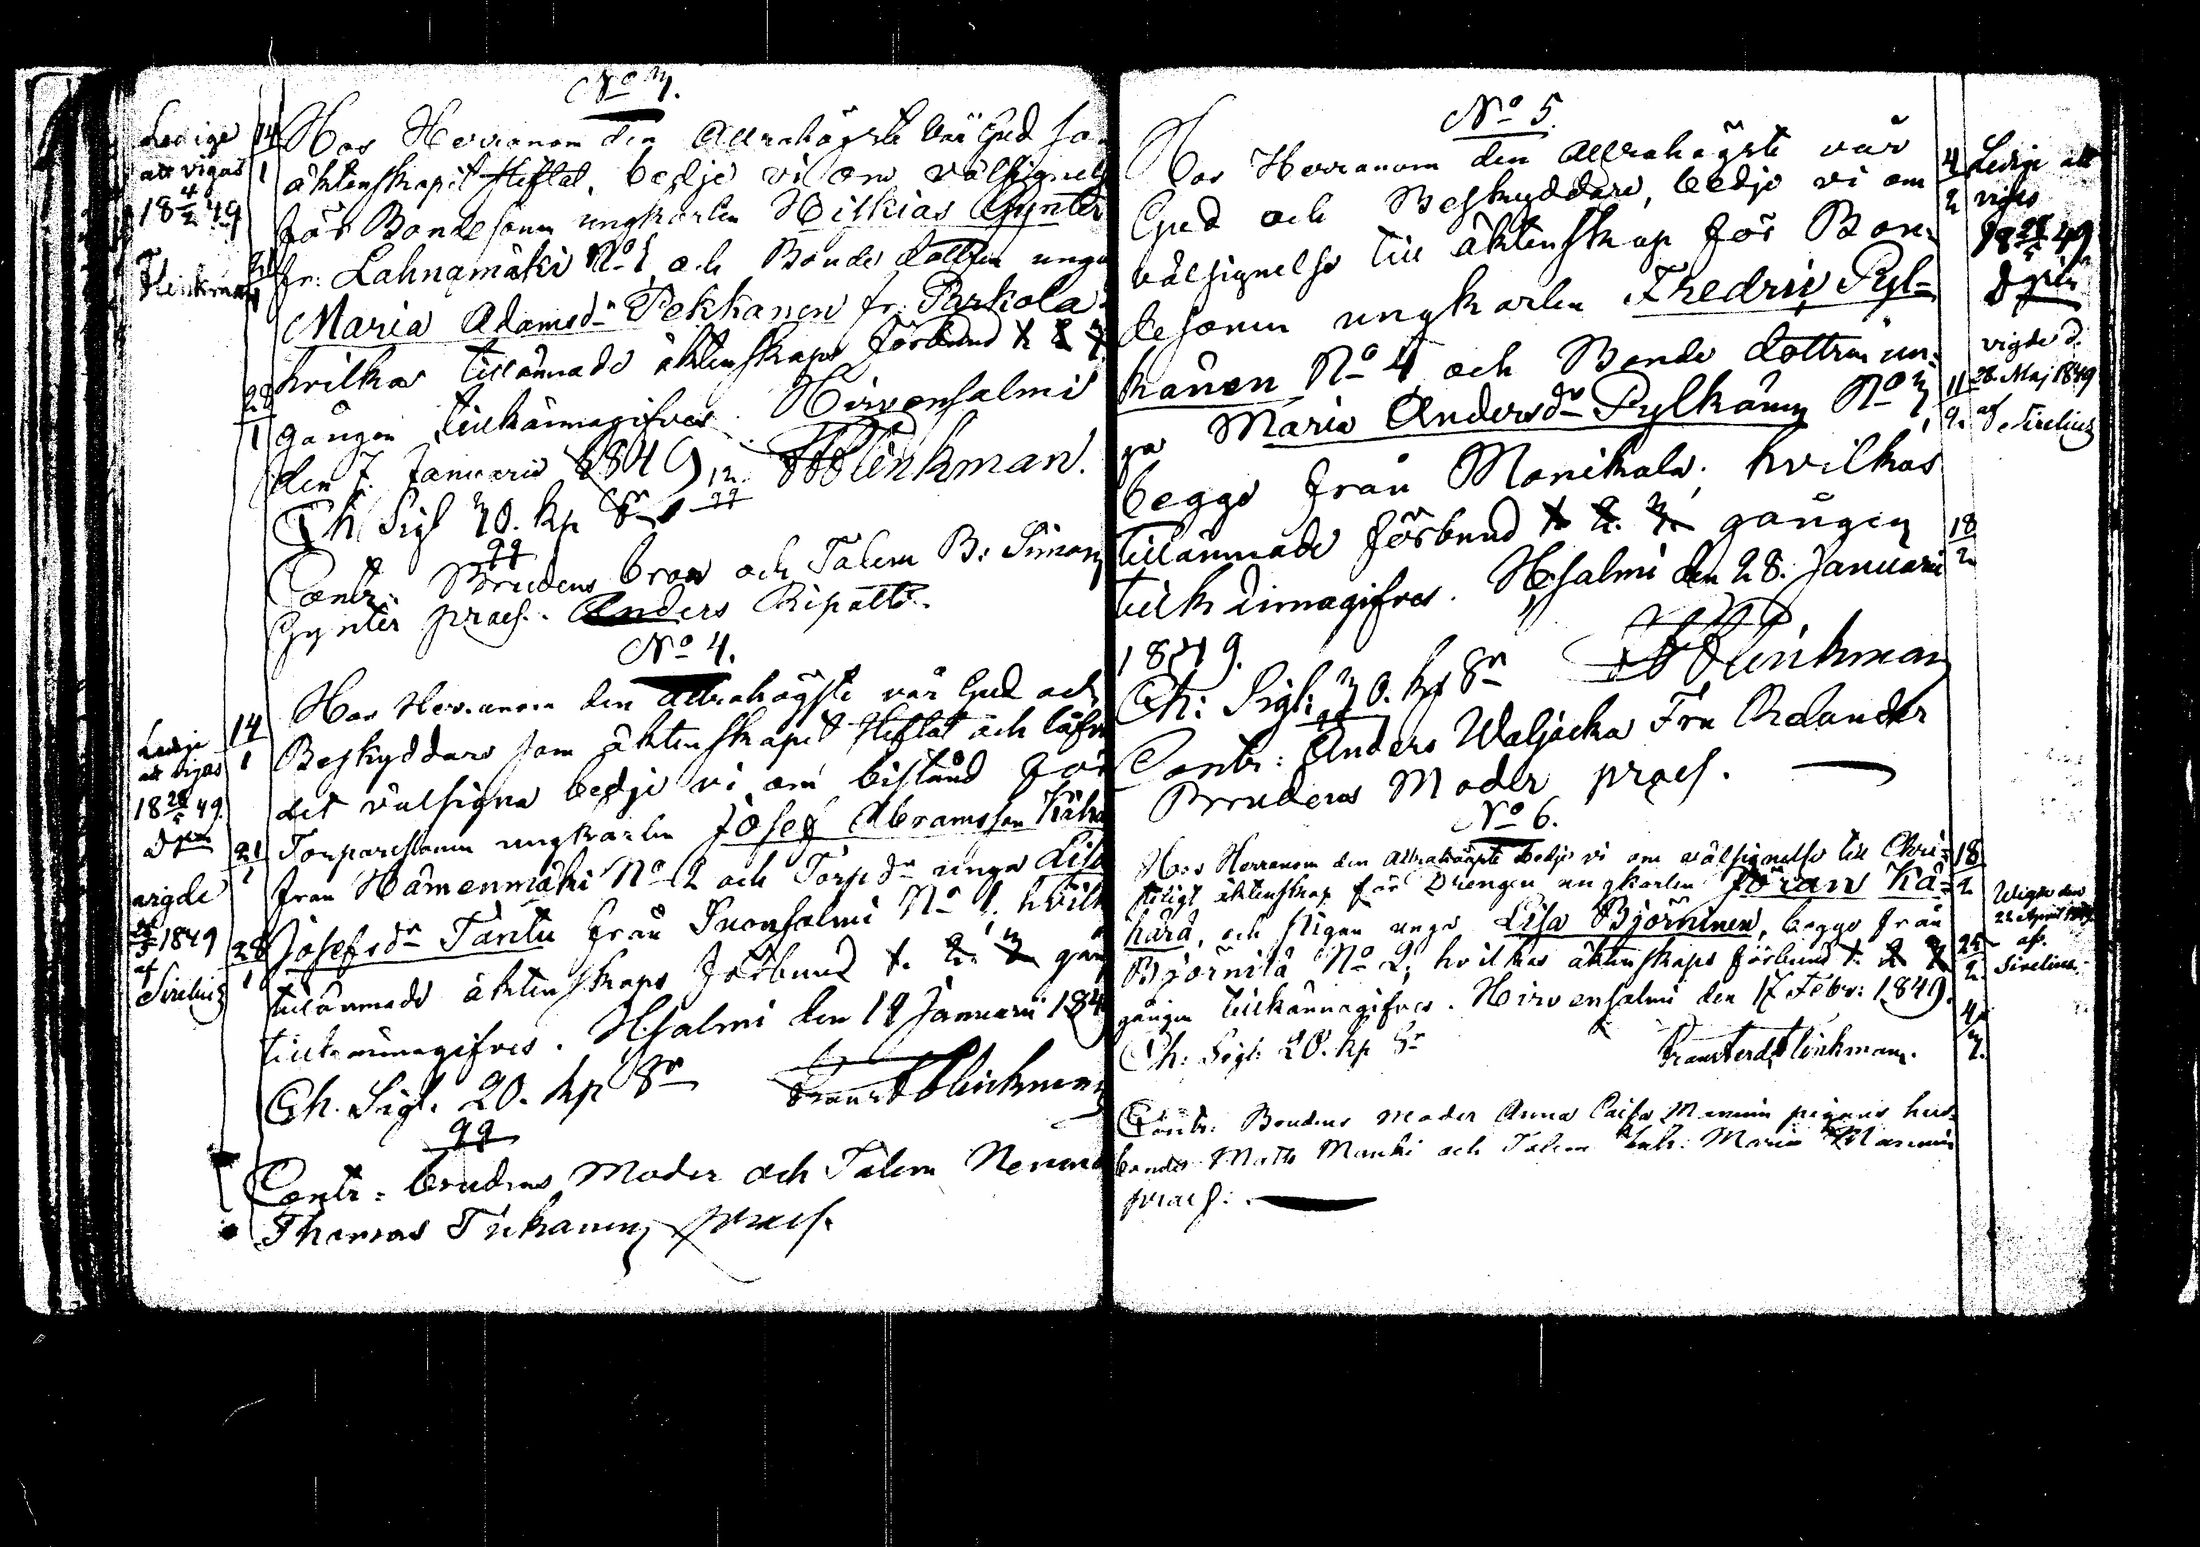 No 3.
Ledige
att vigas
18 4/2 49
Flinkman
14
1
21
1
28
1
Hos Herranom den Allrahögste vår Gud so
äktenskapet stiftat, bedje vi om välsignels
för Bondesonen ungkarlen Hilkias Gynter
fr: Lahnamäki No 1 och Bonde dottren unga
Maria Adamsdr Pekkanen fr. Parkola
hvilkas tillämnade äktenskaps förbund 1 2 3
gången tillkännagifves. Hirvensalmi
den 7. Januarii 1849. Flinkman.
Ch. Sigl 30. kp Sr
Contr: Brudens bror och Talem B: Simon
Gynter praes. Anders Ripatti.
No 4.
Ledige
att vigas
18 28/5 49.
vigde
28/5 1849
af
Sirelius
14
1
21
1
28
1
Hos Herranom den Allrahögste vår Gud och
Beskyddare som äktenskapet stiftat och låfv
det välsigna bedje vi om bistånd för
Torparesonen ungkarlen Josef Abramsson Kähö
från Hämenmäki No 2 och Torp dr unga Lisa
Josefsdr Tantu från Suonsalmi No 1. hvilk
tillämnade äktenskaps förbund 1. 2. 3 gång
tillkännagifves. H:salmi den 14 Januarii 184
Ch. Sigl. 20. kp Sr Flinkman
Contr: brudens Moder och Talem
Thomas Tiihanen praes.
No 5.
Hos Herranom den Allrahögste vår
Gud och Beskyddare, bedje vi om
välsignelse till äktenskap för Bon-
desonen ungkarlen Fredric Pyl-
känen No 4 och Bonde dottren un-
ga Maria Andersdr Pylkänen No 3,
begge från Monikala; hvilkas
tillämnade förbund 1 2. 3. gången
tillkännagifves. H:salmi den 28. Januarii
1849. Flinkman
Ch: Sigl: 30. kp Sr
Contr: Anders Waljacka Fru Chelander
Brudens Moder praes.
4
2
11
2.
18
2
Ledige att
vigas
18 28/5 49
vigde d.
28 Maj 1849
af Sirelius
No 6.
Hos Herranom den Allrahögste bedje vi om välsignelse till Chri-
steligt äktenskap för Drengen ungkarlen Jöran Kä-
härä, och Pigan unga Lisa Björninen, begge från
Björnilä No 2; hvilkas äktenskaps förbund 1. 2 3
gången tillkännagifves. Hirvensalmi den 17 Febr: 1849.
Ch: Sigl: 20. kp Sr Flinkman.
Contr: Brudens moder Anna Caisa Manninen pigans hus-
bonde Matts Manki och Talem Maria Manninen
praes:
18
2
25
2.
4
3.
Wigde den
22 April 1849
af.
Sirelius.